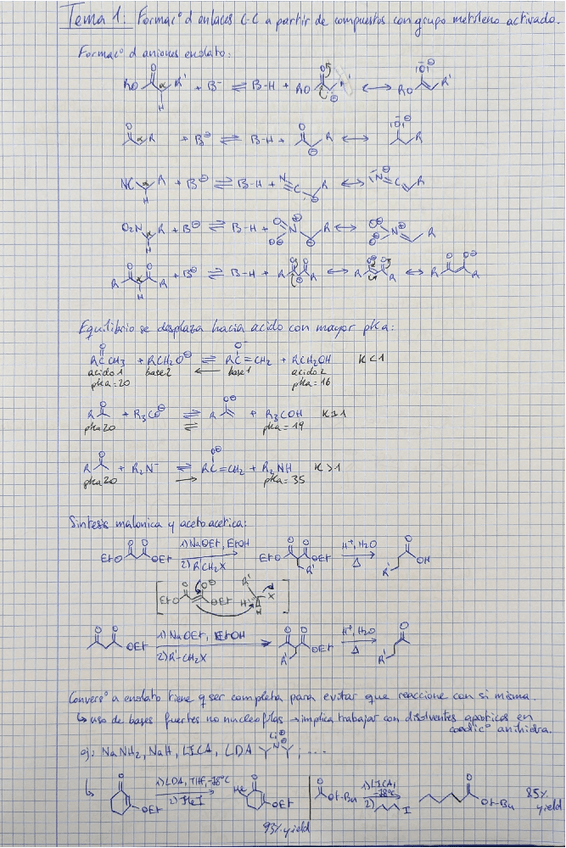 Tema 1: Formac° d enlaces C-C a partir de compuestos con grupo metileno activado.
Formac° d aniones enolato:
RO α R' + B⁻ ⇌ B-H + RO R' ↔ RO R'
α R + B⊖ ⇌ B-H + R ↔ R
NC α R + B⊖ ⇌ B-H + N≡C R ↔ N=C R
O₂N α R + B⊖ ⇌ B-H + R ↔ R
R α R + B⊖ ⇌ B-H + R R ↔ R R ↔ R R
Equilibrio se desplaza hacia acido con mayor pKa:
RCCH₃ + RCH₂O⊖ ⇌ RC=CH₂ + RCH₂OH K<1
acido 1 base2 ← base1 acido 2
pKa=20 pKa=16
R + R₃CO⊖ ⇌ R + R₃COH K≃1
pKa 20 ⇌ pKa=19
R + R₂N⁻ ⇌ RC=CH₂ + R₂NH K>1
pKa 20 → pKa=35
Sintesis malonica y acetoacetica:
EtO OEt 1) NaOEt, EtOH 2) RCH₂X EtO OEt R' H⁺, H₂O Δ R' OH
EtO OEt R' H X
OEt 1) NaOEt, EtOH 2) R'-CH₂X OEt R' H⁺, H₂O Δ R'
Convers° a enolato tiene q ser completa para evitar que reaccione con si misma.
↳ uso de bases fuertes no nucleofilas → implica trabajar con disolventes aproticos en
condic° anhidra.
ej: NaNH₂, NaH, LICA, LDA Li⊕ N⊖ , ...
↳ OEt 1) LDA, THF, -78°C 2) MeI Me OEt Ot-Bu 1) LICA, -78°C 2) I Ot-Bu 85% yield
93% yield